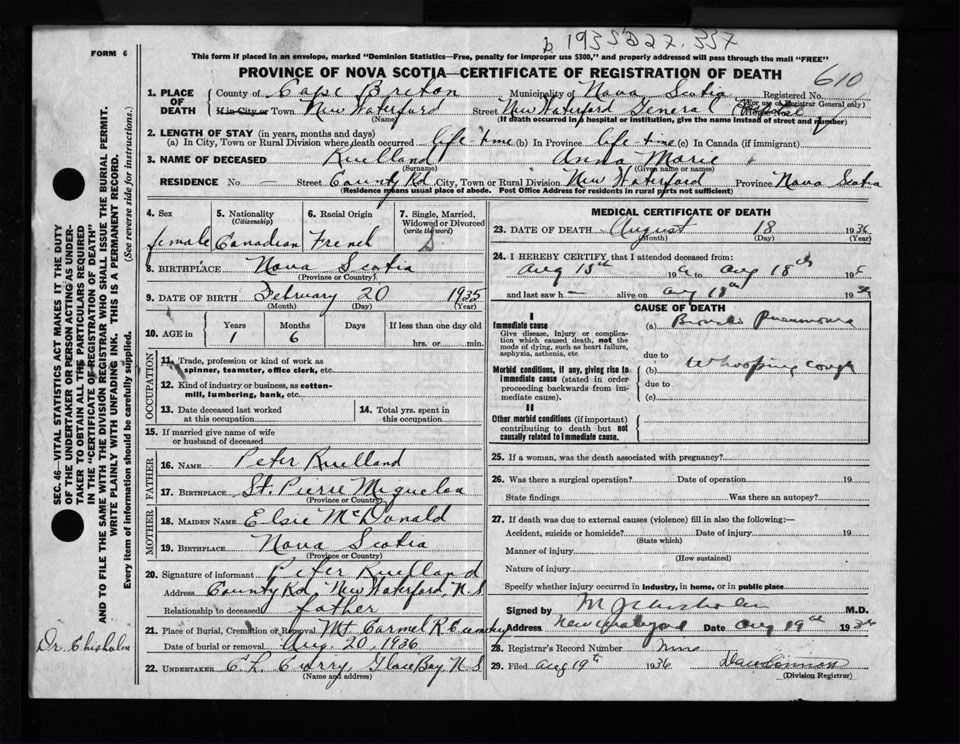 1935 D 27.357
FORM 6
This form if placed in an envelope, marked "Dominion Statistics—Free, penalty for improper use $300," and properly addressed will pass through the mail "FREE"
PROVINCE OF NOVA SCOTIA—CERTIFICATE OF REGISTRATION OF DEATH
610
1. PLACE OF DEATH County of Cape Breton Municipality of Nova Scotia Registered No.
(For use of Registrar General only)
If in City or Town New Waterford Street New Waterford General Hospital
(Name) (If death occurred in a hospital or institution, give the name instead of street and number)
2. LENGTH OF STAY (in years, months and days)
(a) In City, Town or Rural Division where death occurred life-time (b) In Province life-time (c) In Canada (if immigrant)
3. NAME OF DECEASED Ruelland Anna Marie
(Surname) (Given name or names)
RESIDENCE No — Street County Rd City, Town or Rural Division New Waterford Province Nova Scotia
(Residence means usual place of abode. Post Office Address for residents in rural parts not sufficient)
4. Sex female
5. Nationality (Citizenship) Canadian
6. Racial Origin French
7. Single, Married, Widowed or Divorced (write the word) S
8. BIRTHPLACE Nova Scotia
(Province or Country)
9. DATE OF BIRTH February 20 1935
(Month) (Day) (Year)
10. AGE in Years 1 Months 6 Days If less than one day old
hrs. or min.
OCCUPATION
11. Trade, profession or kind of work as spinner, teamster, office clerk, etc.
12. Kind of industry or business, as cotton-mill, lumbering, bank, etc.
13. Date deceased last worked at this occupation
14. Total yrs. spent in this occupation
15. If married give name of wife or husband of deceased
FATHER
16. NAME Peter Ruelland
17. BIRTHPLACE St. Pierre Miquelon
(Province or Country)
MOTHER
18. MAIDEN NAME Elsie McDonald
19. BIRTHPLACE Nova Scotia
(Province or Country)
20. Signature of informant Peter Ruelland
Address County Rd New Waterford, N.S
Relationship to deceased father
21. Place of Burial, Cremation or Removal Mt. Carmel R.C.
Date of burial or removal Aug. 20, 1936
22. UNDERTAKER C L Curry, Glace Bay, N.S
(Name and address)
MEDICAL CERTIFICATE OF DEATH
23. DATE OF DEATH August 18 1936
(Month) (Day) (Year)
24. I HEREBY CERTIFY, that I attended deceased from:
Aug 15th 19 to Aug 18th 19
and last saw h alive on Aug 18th 1936
CAUSE OF DEATH
I
Immediate cause
Give disease, injury or complication which caused death, not the mode of dying, such as heart failure, asphyxia, asthenia, etc
(a) Broncho Pneumonia
due to
Morbid conditions, if any, giving rise to immediate cause (stated in order proceeding backwards from immediate cause).
(b) Whooping cough
due to
(c)
II
Other morbid conditions (if important) contributing to death but not causally related to immediate cause.
25. If a woman, was the death associated with pregnancy?
26. Was there a surgical operation? Date of operation 19
State findings Was there an autopsy?
27. If death was due to external causes (violence) fill in also the following:—
Accident, suicide or homicide? Date of injury 19
(State which)
Manner of injury
(How sustained)
Nature of injury
Specify whether injury occurred in industry, in home, or in public place
Signed by M J Chisholm M.D.
Address New Waterford Date Aug 19th 1936
28. Registrar's Record Number
29. Filed Aug 19th 1936
(Division Registrar)
SEC. 46—VITAL STATISTICS ACT MAKES IT THE DUTY
OF THE UNDERTAKER OR PERSON ACTING AS UNDER-
TAKER TO OBTAIN ALL THE PARTICULARS REQUIRED
IN THE "CERTIFICATE OF REGISTRATION OF DEATH"
AND TO FILE THE SAME WITH THE DIVISION REGISTRAR WHO SHALL ISSUE THE BURIAL PERMIT.
WRITE PLAINLY WITH UNFADING INK. THIS IS A PERMANENT RECORD.
Every item of information should be carefully supplied. (See reverse side for instructions.)
Dr. Chisholm